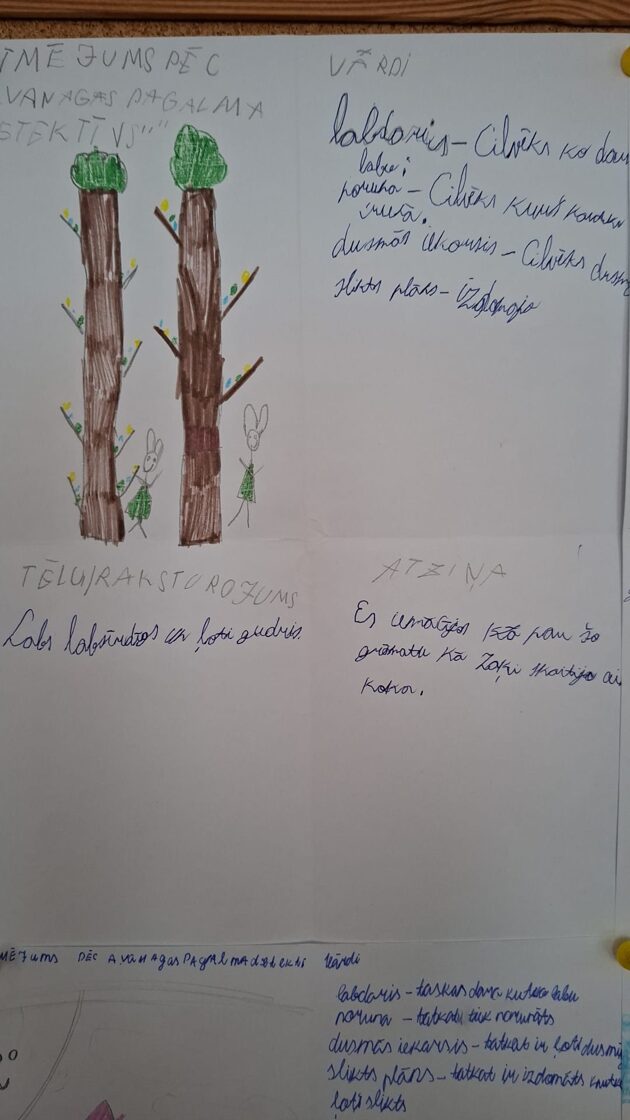 ĪMĒJUMS PĒC
VANAGAS PAGALMA
STEKTĪVS""
VĀRDI
labdaris - Cilvēks ko dara
labu;
noruna - Cilvēks kurš kau
runā.
dusmās iekarsis - Cilvēks dusm
slikts plāns - izdomāja
TĒLU RAKSTUROJUMS
Labs labsirdīgs un ļoti gudris.
ATZIŅA
Es iemācījos par šo
grāmatu kā Zaķi skaitīja ai
koka.
MĒJums PĒC AVANAGAS PAgAlMAdetekti Vārdi
labdaris - tas kas dara labu
noruna - tatkad tiek norunāts
dusmās iekarsis - tatkat ir ļoti dusmī
slikts plāns - tatkat ir izdomāts
ļoti slikts